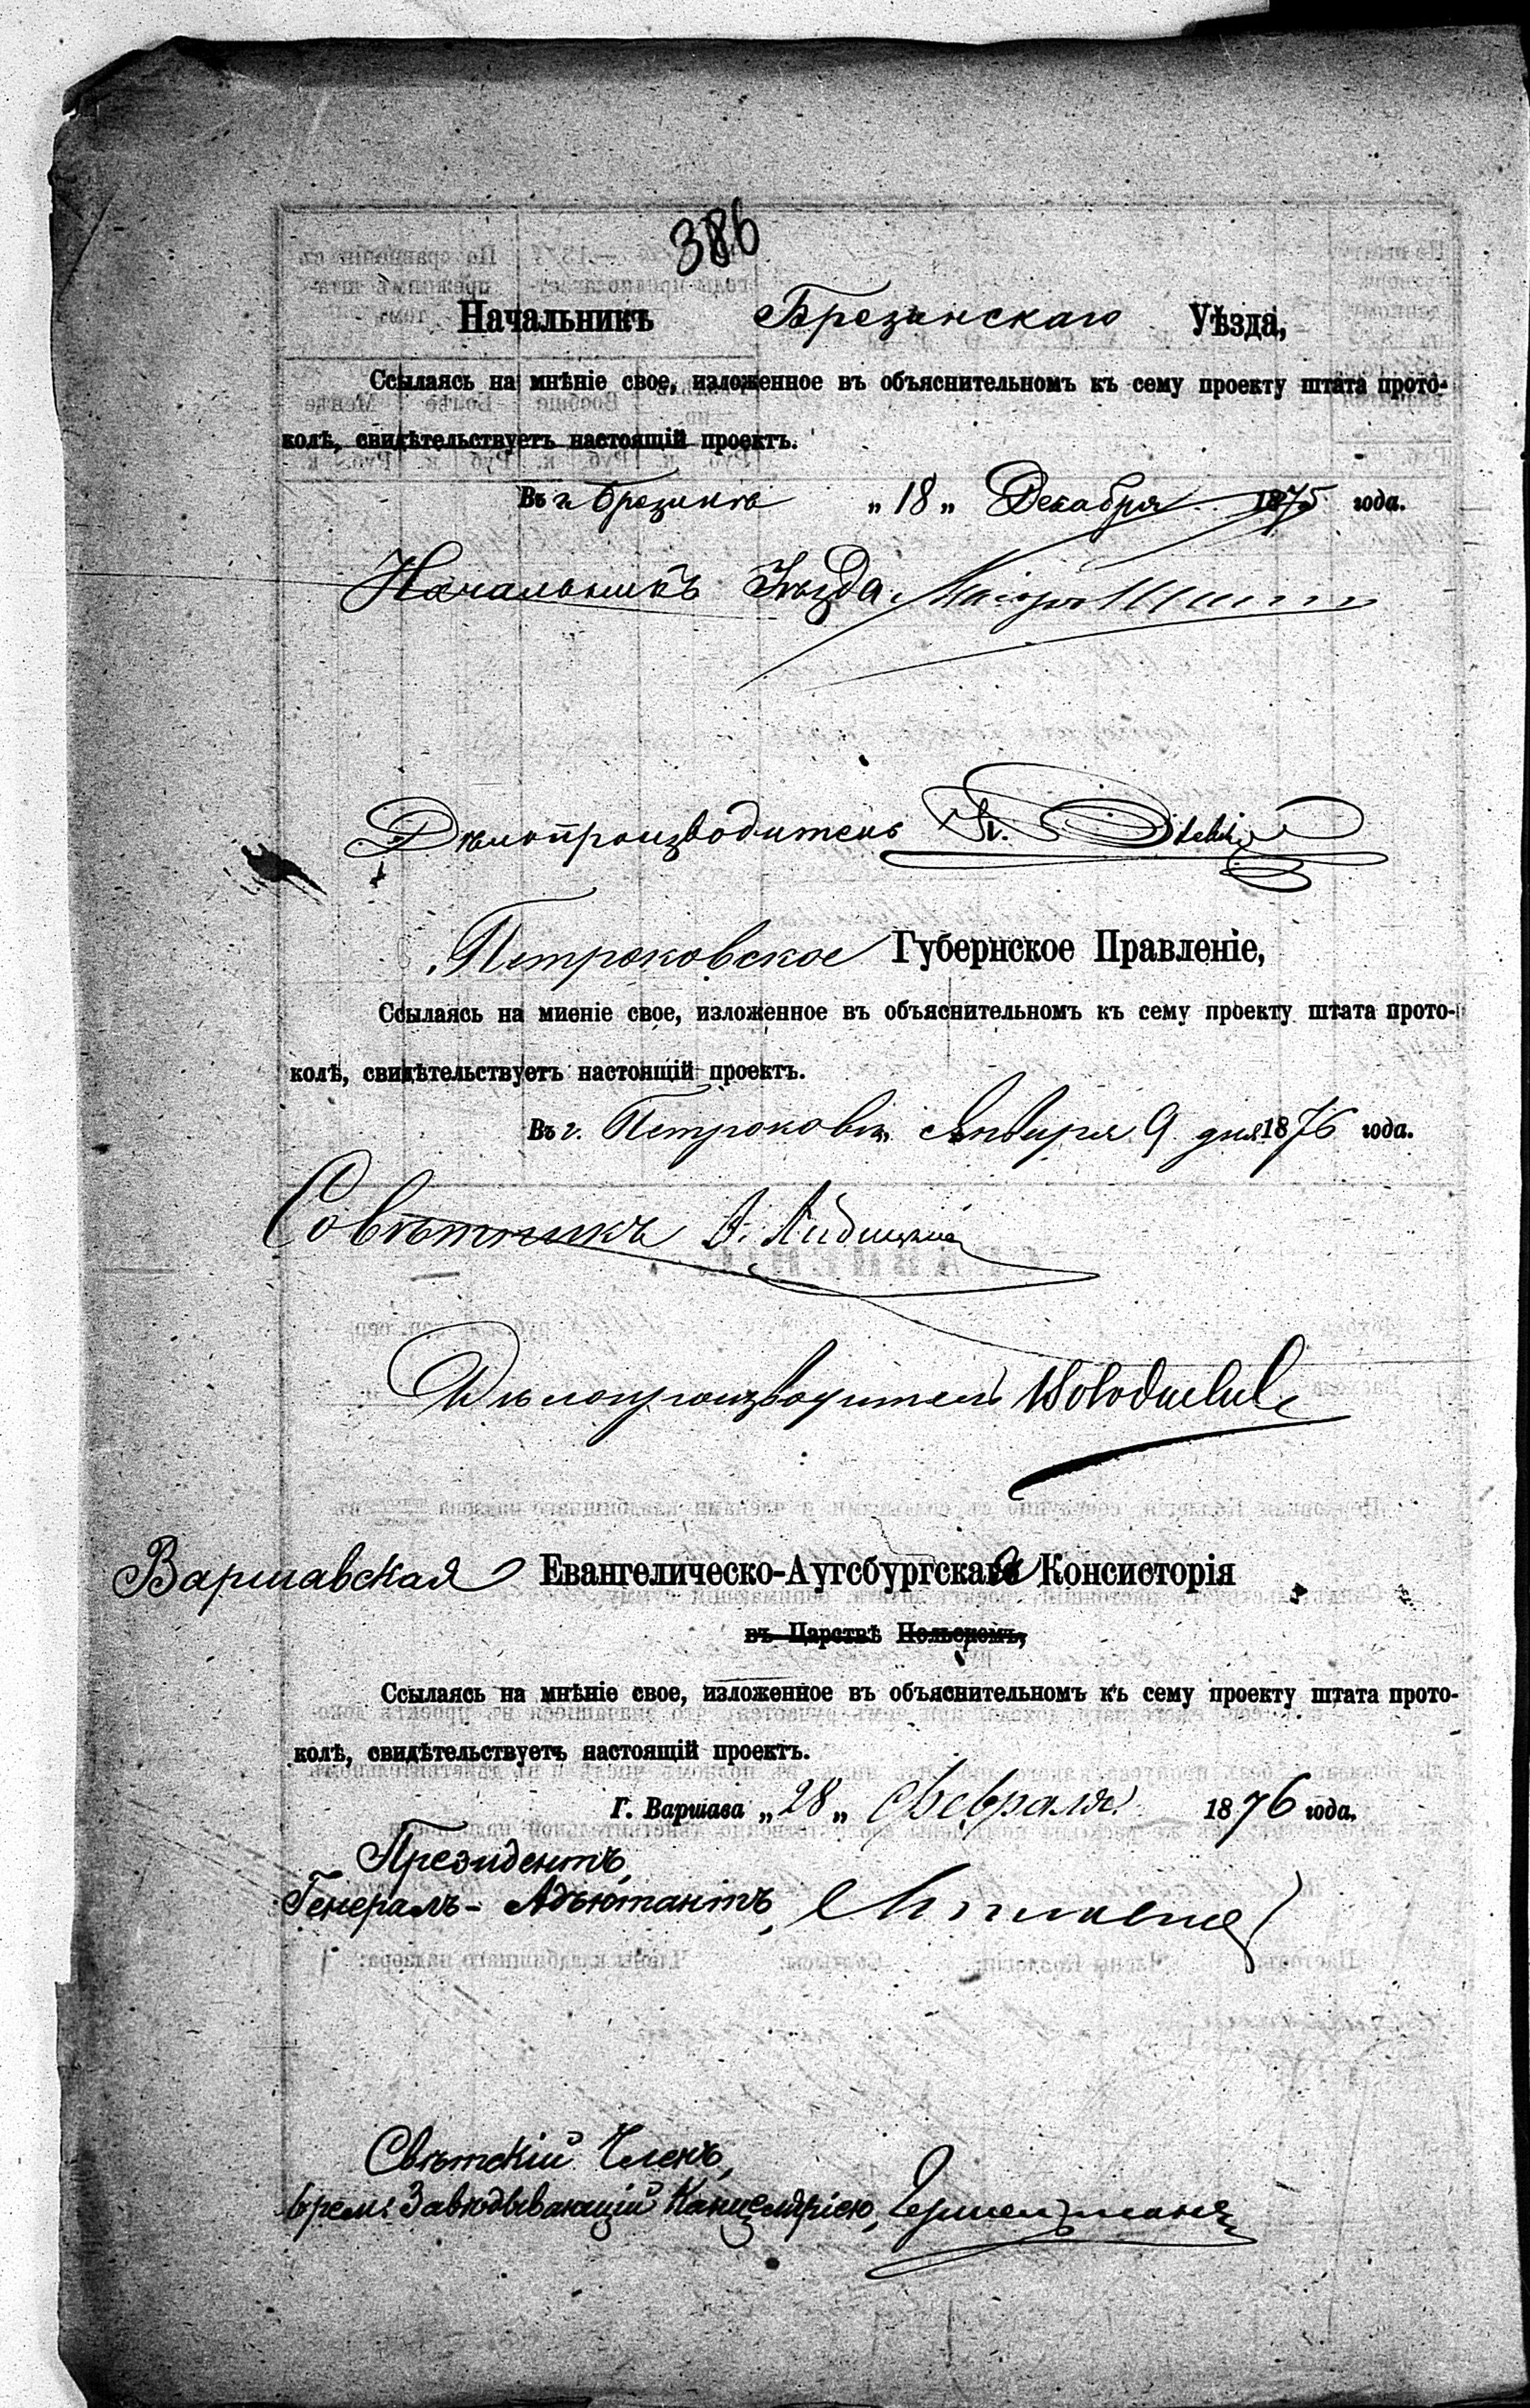 386
Начальникъ Брезинскаго Уѣзда,
Ссылаясь на мнѣніе свое, изложенное въ объяснительномъ къ сему проекту штата прото-
колѣ, свидѣтельствуетъ настоящій проектъ.
Въ г. Брезинѣ „ 18 „ Декабря 1875 года.
Начальникъ Уѣзда Маіоръ
Дѣлопроизводитель
Петроковское Губернское Правленіе,
Ссылаясь на миеніе свое, изложенное въ объяснительномъ къ сему проекту штата прото-
колѣ, свидѣтельствуетъ настоящій проектъ.
Въ г. Петроковѣ Января 9 дня 1876 года.
Совѣтникъ
Дѣлопроизводитель
Варшавская Евангелическо-Аугсбургская Консисторія
въ Царствѣ Польскомъ,
Ссылаясь на мнѣніе свое, изложенное въ объяснительномъ къ сему проекту штата прото-
колѣ, свидѣтельствуетъ настоящій проектъ.
Г. Варшава „ 28 „ Февраля 1876 года.
Президентъ,
Генералъ-Адъютантъ,
Свѣтскій Членъ,
Врем. Завѣдывающій Канцеляріею,